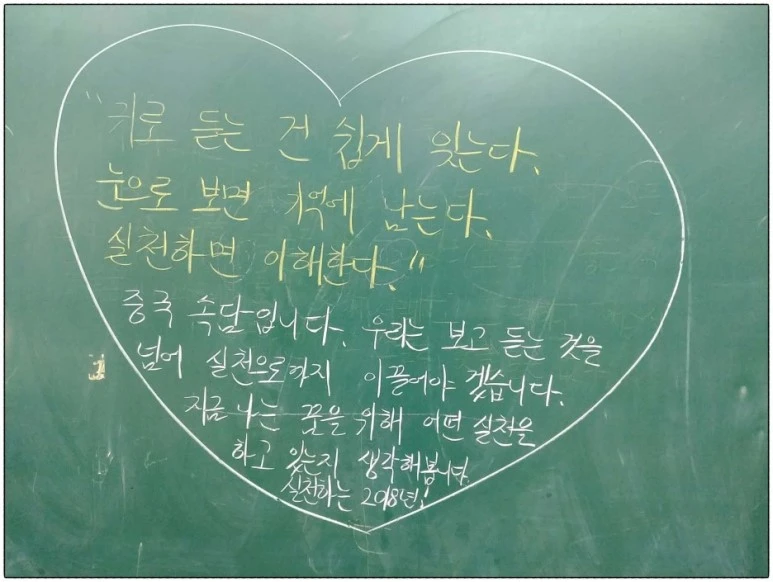 "귀로 듣는 건 쉽게 잊는다.
눈으로 보면 기억에 남는다.
실천하면 이해한다."
중국 속담입니다. 우리는 보고 듣는 것을
넘어 실천으로까지 이끌어야 겠습니다.
지금 나는 꿈을 위해 어떤 실천을
하고 있는지 생각해봅니다.
실천하는 2018년!